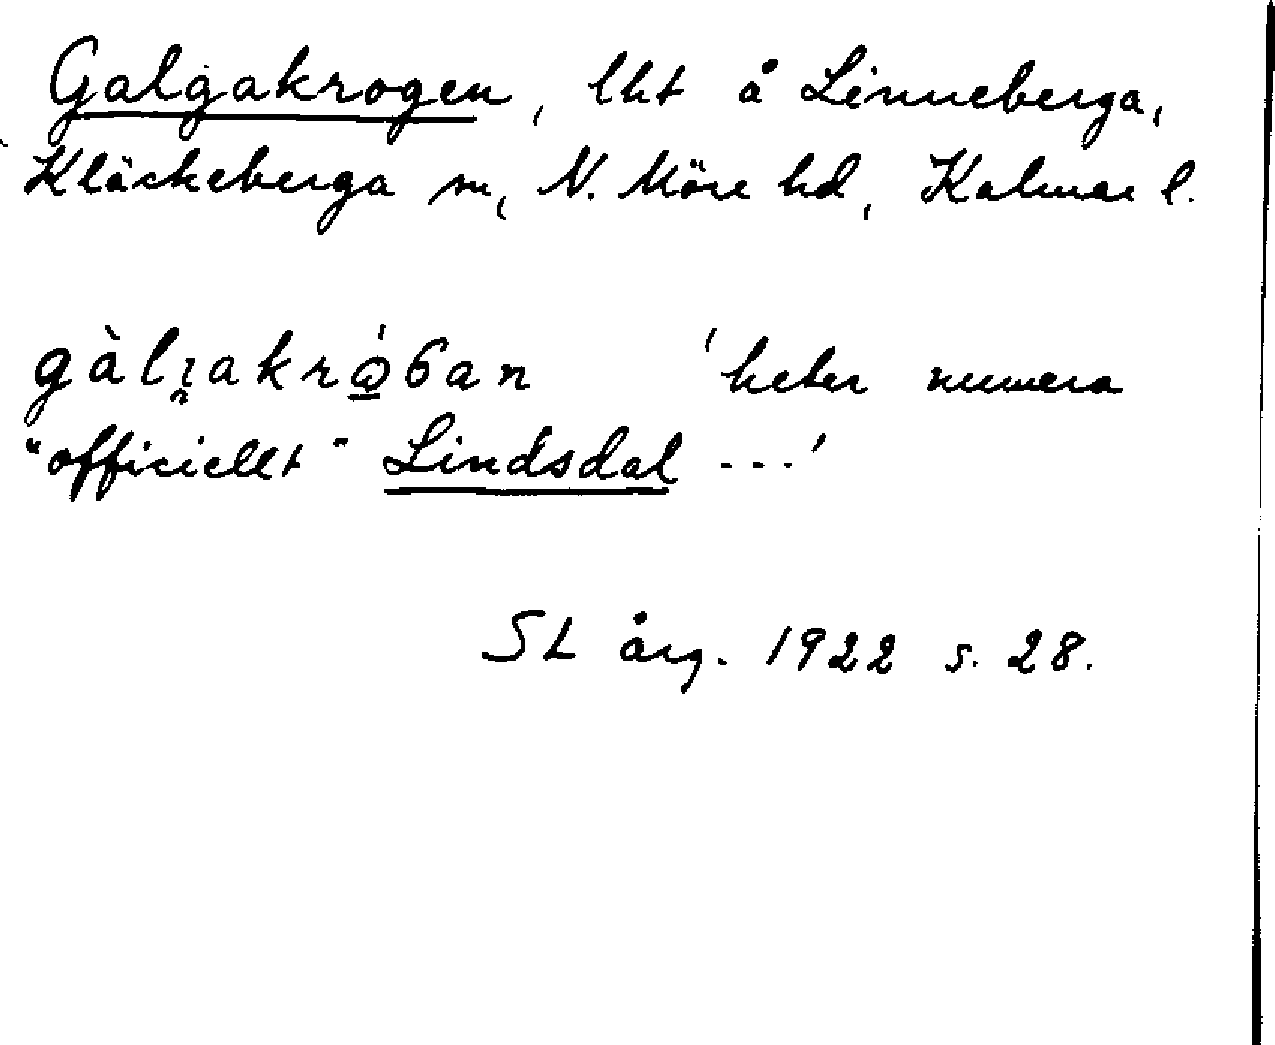 Galgakrogen, lht å Linneberga,
Kläckeberga sn, N. Möre hd, Kalmar l.
'heter numera
"officiellt" Lindsdal ---'
SL årg. 1922 s. 28.